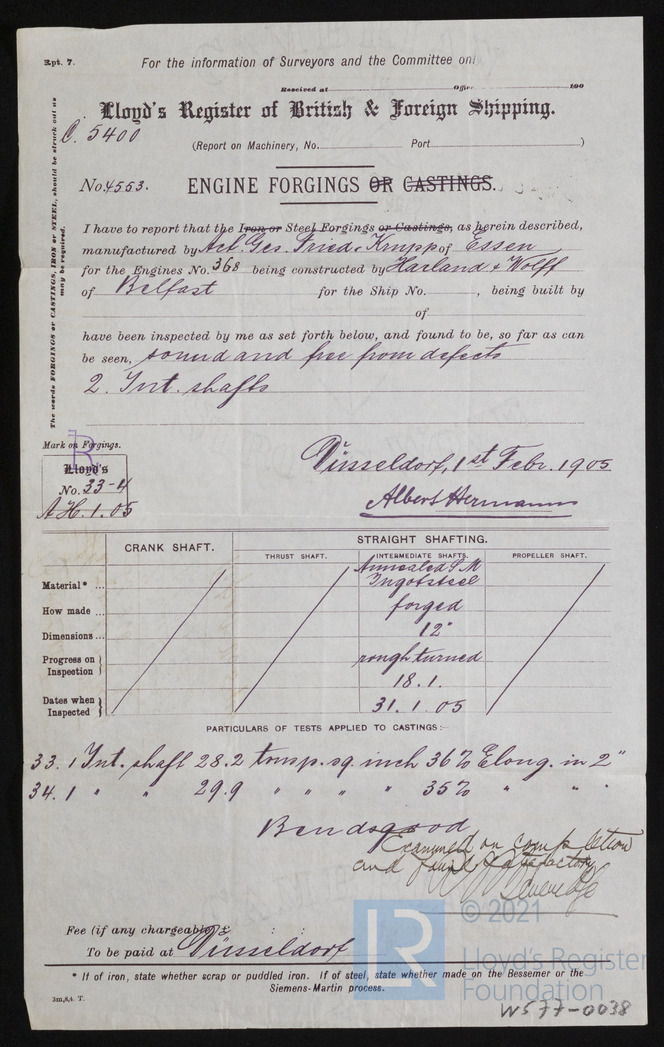 Rpt. 7.
For the information of Surveyors and the Committee onl
Received at Office 190
Lloyd's Register of British & Foreign Shipping.
C. 5400
(Report on Machinery, No. Port )
No. 4553. ENGINE FORGINGS OR CASTINGS.
The words FORGINGS or CASTINGS, IRON or STEEL, should be struck out as
may be required.
I have to report that the Iron or Steel Forgings or Castings, as herein described,
manufactured by Act. Ges. Fried. Krupp of Essen
for the Engines No. 368 being constructed by Harland & Wolff
of Belfast for the Ship No. , being built by
of
have been inspected by me as set forth below, and found to be, so far as can
be seen, sound and free from defects
2. Int. shafts
Mark on Forgings.
R
Lloyd's
No. 33-4
A.H. 1. 05
Düsseldorf, 1st Febr. 1905
Albert Hermanns
CRANK SHAFT. STRAIGHT SHAFTING.
THRUST SHAFT. INTERMEDIATE SHAFTS. PROPELLER SHAFT.
Material* ... Annealed S.M
Ingotsteel
How made ... forged
Dimensions ... 12"
Progress on Inspection rough turned
18. 1.
Dates when Inspected 31. 1. 05
PARTICULARS OF TESTS APPLIED TO CASTINGS:—
33. 1 Int. shaft 28.2 tons p. sq. inch 36% Elong. in 2"
34. 1 " " 29.9 " " " " 35% " " "
Bends good
Examined on completion
and found satisfactory
Fee (if any chargeable) £ : :
To be paid at Düsseldorf
* If of iron, state whether scrap or puddled iron. If of steel, state whether made on the Bessemer or the
Siemens-Martin process.
3m,8,4. T.
LR
© 2021
Lloyd's Register
Foundation
W577-0038